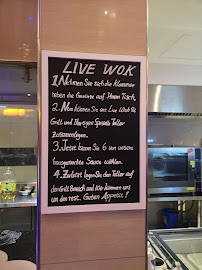 LIVE WOK
1. Nehmen Sie sich die Klammer
neben die Gewürze auf Ihrem Tisch.
2. Nun können Sie ans Live Wok &
Grill und Ihre eigene Spezielle Teller
zusammenlegen.
3. Jetzt können Sie 6 von unsere
hausgemachte Sauce wählen.
4. Zuletzt legen Sie den Teller auf
den Grill Bereich und Wir kümmern uns
um den rest. Guten Appetit!